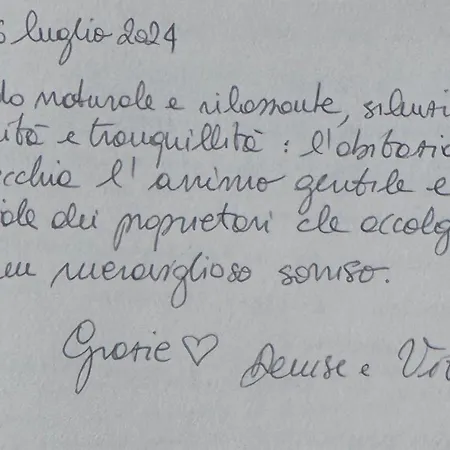 6 luglio 2024
do naturale e rilassante, silenzi
ità e tranquillità : l'abitazio
cchia l'animo gentile e
ale dei proprietari che accolg
un meraviglioso sorriso.
Grazie ♡ Denise e Vi